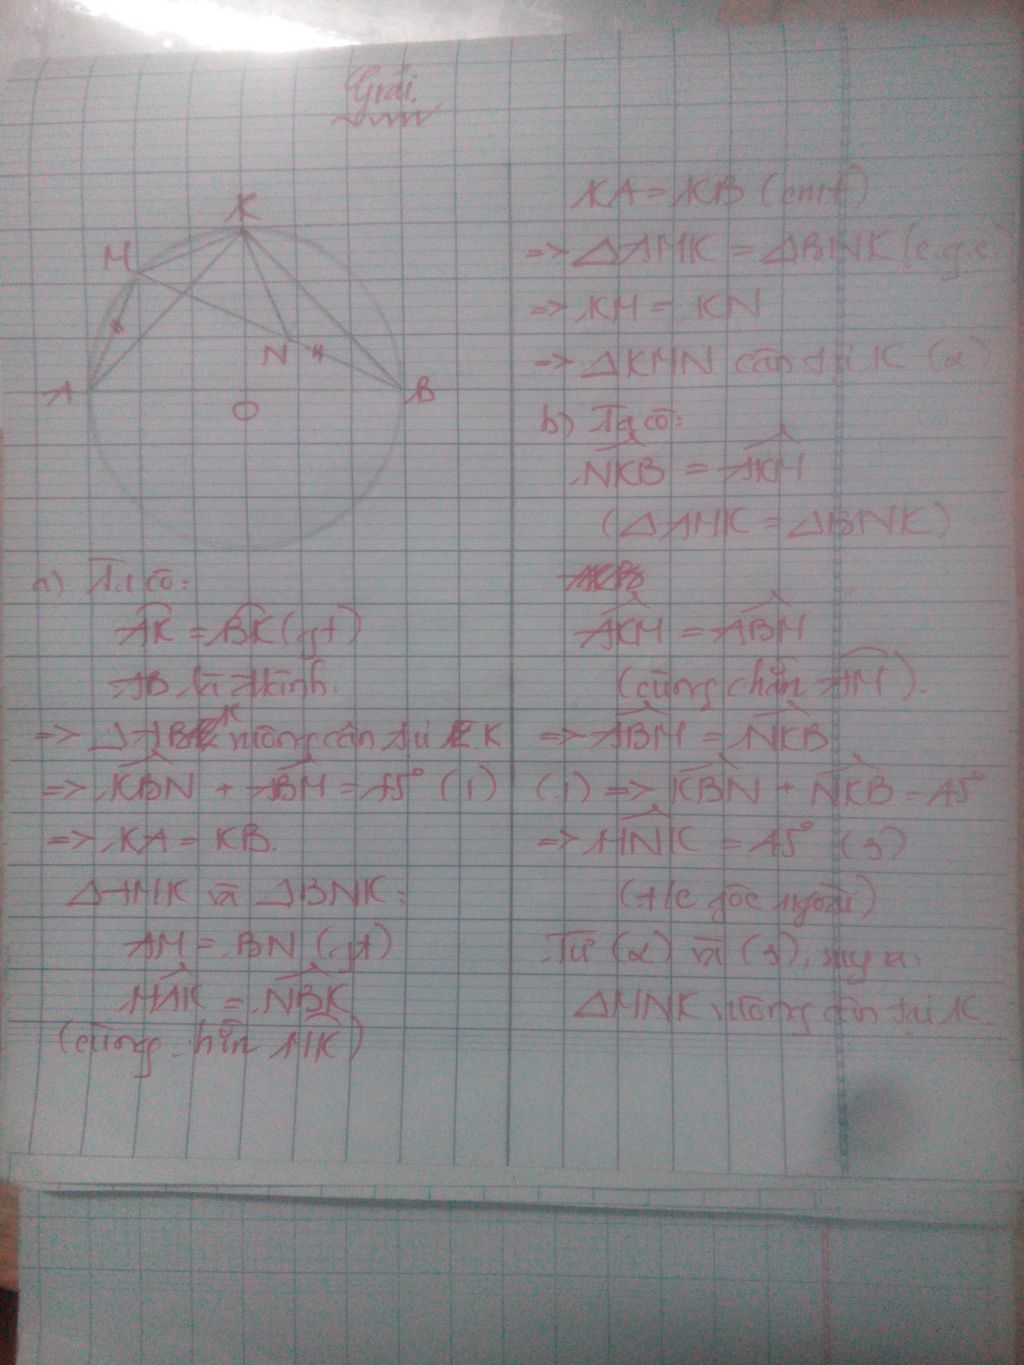 Giải
K
M
N
A
O
B
a) Ta có:
AK = BK (gt)
AB là đkính.
=> △ABK vuông cân tại K
=> KBN + ABM = 45° (1)
=> KA = KB.
△AMK và △BNK:
AM = BN (gt)
MAK = NBK
(cùng chắn MK)
KA = KB (cmt)
=> △AMK = △BNK (c.g.c)
=> KM = KN
=> △KMN cân tại K (2)
b) Ta có:
NKB = AKM
(△AMK = △BNK)
AKM = ABM
(cùng chắn AM).
=> ABM = NKB
(1) => KBN + NKB = 45°
=> MNK = 45° (3)
(t/c góc ngoài)
Từ (2) và (3), suy ra:
△MNK vuông cân tại K